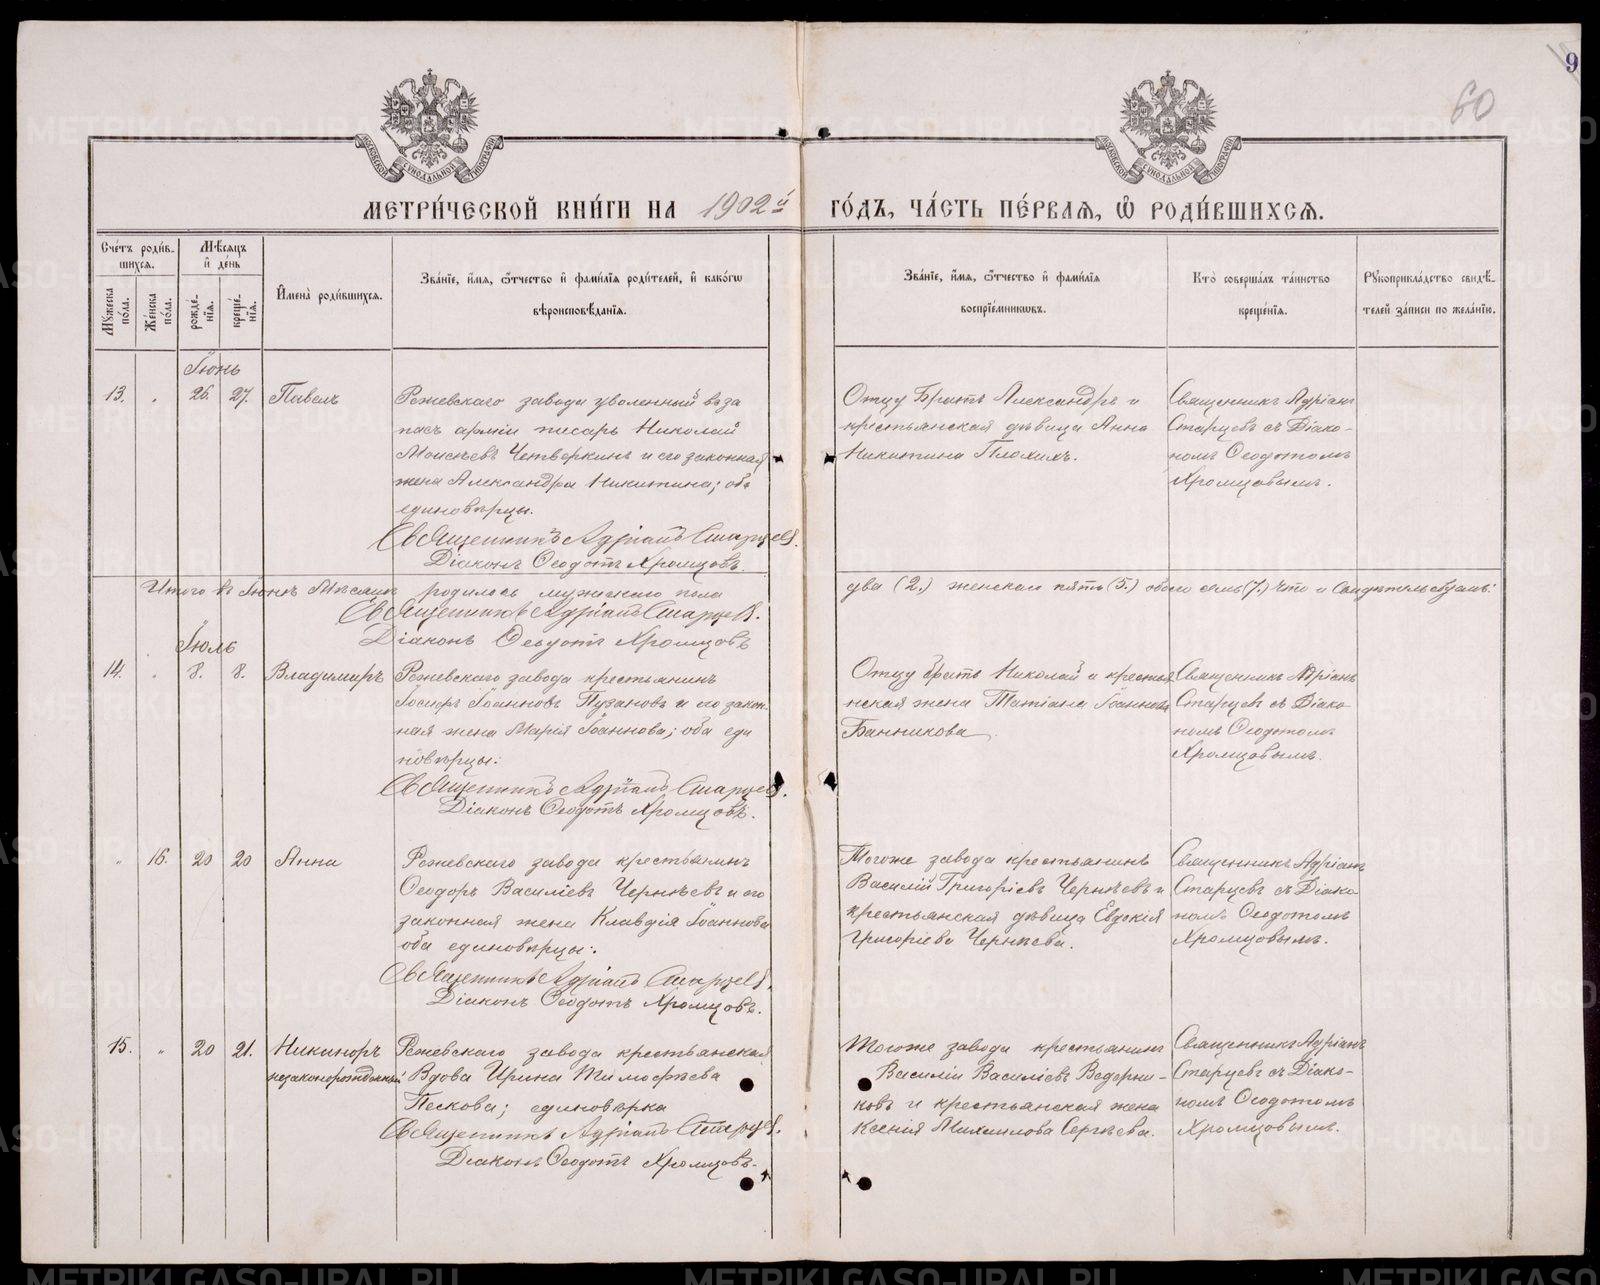 9
60
МОСКОВСКОЙ СѴНОДАЛЬНОЙ ТИПОГРАФІИ
МОСКОВСКОЙ СѴНОДАЛЬНОЙ ТИПОГРАФІИ
МЕТРИ́ЧЕСКОЙ КНИ́ГИ НА 1902й ГО́ДЪ, ЧА́СТЬ ПЕ́РВАЯ, Ѡ РОДИ́ВШИХСЯ.
Сче́тъ роди́в-
шихся.
Мѣ́сяцъ
и҆ де́нь
Мꙋ́жеска по́ла.
Же́нска по́ла.
рожде́-
нїя.
креще́-
нїя.
И҆мена̀ роди́вшихся.
Зва́нїе, и҆́мя, ѻ҆́тчество и҆ фами́лїя роди́телей, и҆ како́гѡ
вѣроисповѣ́данїя.
Зва́нїе, и҆́мя, ѻ҆́тчество и҆ фами́лїя
воспрїе́мникѡвъ.
Кто̀ соверша́лъ та́инство
креще́нїя.
Рꙋкоприкла́дство свидѣ́-
телей за́писи по жела́нїю.
Іюнь
13. „ 26. 27. Павелъ
Режевскаго завода уволенный въ за
пасъ арміи писарь Николай
Моисѣевъ Четверкинъ и его законная
жена Александра Никитина; оба
единовѣрцы.
Священникъ Адріанъ Старцевъ.
Діаконъ Ѳеодотъ Хромцовъ.
Отцу Братъ Александръ и
крестьянская дѣвица Анна
Никитина Плохихъ.
Священникъ Адріанъ
Старцевъ съ Діако-
номъ Ѳеодотомъ
Хромцовымъ.
Итого въ Іюнѣ Мѣсяцѣ родилось мужескаго пола два (2.) женскаго пять (5.) обоего семь (7.) что и свидѣтельствуемъ:
Священникъ Адріанъ Старцевъ.
Діаконъ Ѳеодотъ Хромцовъ
Іюль
14. „ 8. 8. Владимиръ
Режевскаго завода крестьянинъ
Іоанновъ Пузановъ и его закон-
ная жена Марія Іоаннова; оба еди
новѣрцы:
Священникъ Адріанъ Старцевъ.
Діаконъ Ѳеодотъ Хромцовъ.
Отцу братъ Николай и крестья
нская жена Татіана Іоаннова
Банникова.
Священникъ Адріанъ
Старцевъ съ Діако-
номъ Ѳеодотомъ
Хромцовымъ.
„ 16. 20 20 Анна
Режевскаго завода крестьянинъ
Ѳеодоръ Василіевъ Чернѣевъ и его
законная жена Клавдія Іоаннова
оба единовѣрцы:.
Священникъ Адріанъ Старцевъ.
Діаконъ Ѳеодотъ Хромцовъ.
Тогоже завода крестьянинъ
Василій Григоріевъ Чернѣевъ и
крестьянская дѣвица Евдокія
Григоріева Чернѣева.
Священникъ Адріанъ
Старцевъ съ Діако-
номъ Ѳеодотомъ
Хромцовымъ.
15. „ 20 21. Никаноръ
незаконорожденный
Режевскаго завода крестьянская
Вдова Ирина Тимоѳѣева
Пескова; единовѣрка
Священникъ Адріанъ Старцевъ.
Діаконъ Ѳеодотъ Хромцовъ.
Тогоже завода крестьянинъ
Василій Василіевъ Ведерни-
ковъ и крестьянская жена
Ксенія Михаилова Сергѣева.
Священникъ Адріанъ
Старцевъ съ Діако-
номъ Ѳеодотомъ
Хромцовымъ.
METRIKI.GASO-URAL.RU